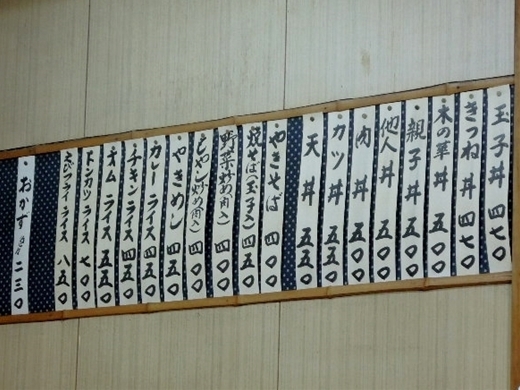 玉子丼 四七〇
きつね丼 四七〇
木の葉丼 四五〇
親子丼 五五〇
他人丼 五五〇
肉丼 五五〇
カツ丼 五五〇
天丼 五五〇
やきそば 四〇〇
焼そば(玉子入) 四五〇
野菜炒め(肉入) 四〇〇
もやし炒め(肉入) 四〇〇
やきめし 四五〇
カレーライス 四五〇
チキンライス 四五〇
オムライス 五五〇
トンカツライス 七〇〇
えびフライライス 八五〇
おかず 二三〇